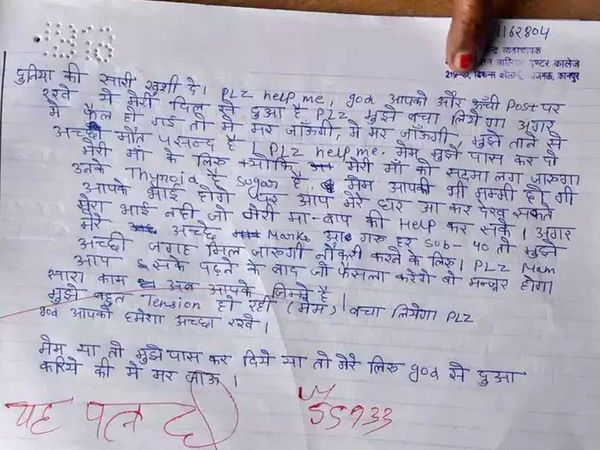 1162804
केन्द्र व्यवस्थापक
बालिका इण्टर कालेज
कानपुर
दुनिया की सारी खुशी दे। PLZ help me, god आपको और ऊँची Post पर
रखे ये मेरी दिल से दुआ है। PLZ मुझे बचा लियेगा अगर
मे फैल हो गई तो मे मर जाऊँगी, मे मर जाऊगी मुझे ताने से
अच्छा मौत पसन्द है। PLZ help me. मेम मुझे पास कर दो
मेरी माँ के लिए क्योकि मेरी माँ को सदमा लग जाएगा
उनके Thyroid है sugar है. मेम आपकी भी मम्मी होगी
आपके भाई होगे पर आप मेरे घर आ कर देख सकते
मेरा भाई नही जो मेरी मा-बाप की Help कर सके। अगर
मेरे अच्छे Marks आ गए हर sub-40 तो मुझे
अच्छी जगह मिल जाएगी नौकरी करने के लिए। PLZ Mam
आप इसके पढ़ने के बाद जो फैसला करेंगे वो मन्जूर होगा।
सारा काम अब आपके जिम्मे है।
मुझे बहुत Tension हो रही (मेम) बचा लियेगा PLZ
god आपको हमेशा अच्छा रखे।
मेम या तो मुझे पास कर दिये या तो मेरे लिए god से दुआ
करिये की मे मर जाऊ।
यह पत्र